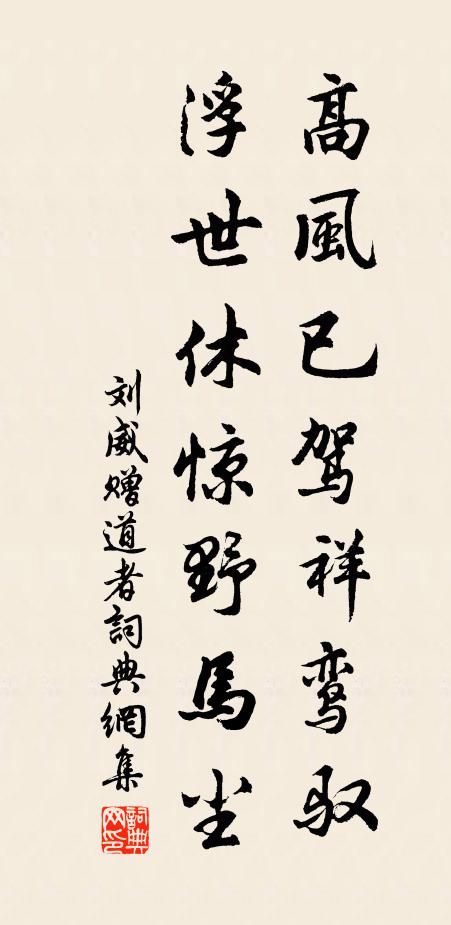 高風已驾祥鸾驭
浮世休惊野馬尘
刘威赠道者詞典網集
詞典网印